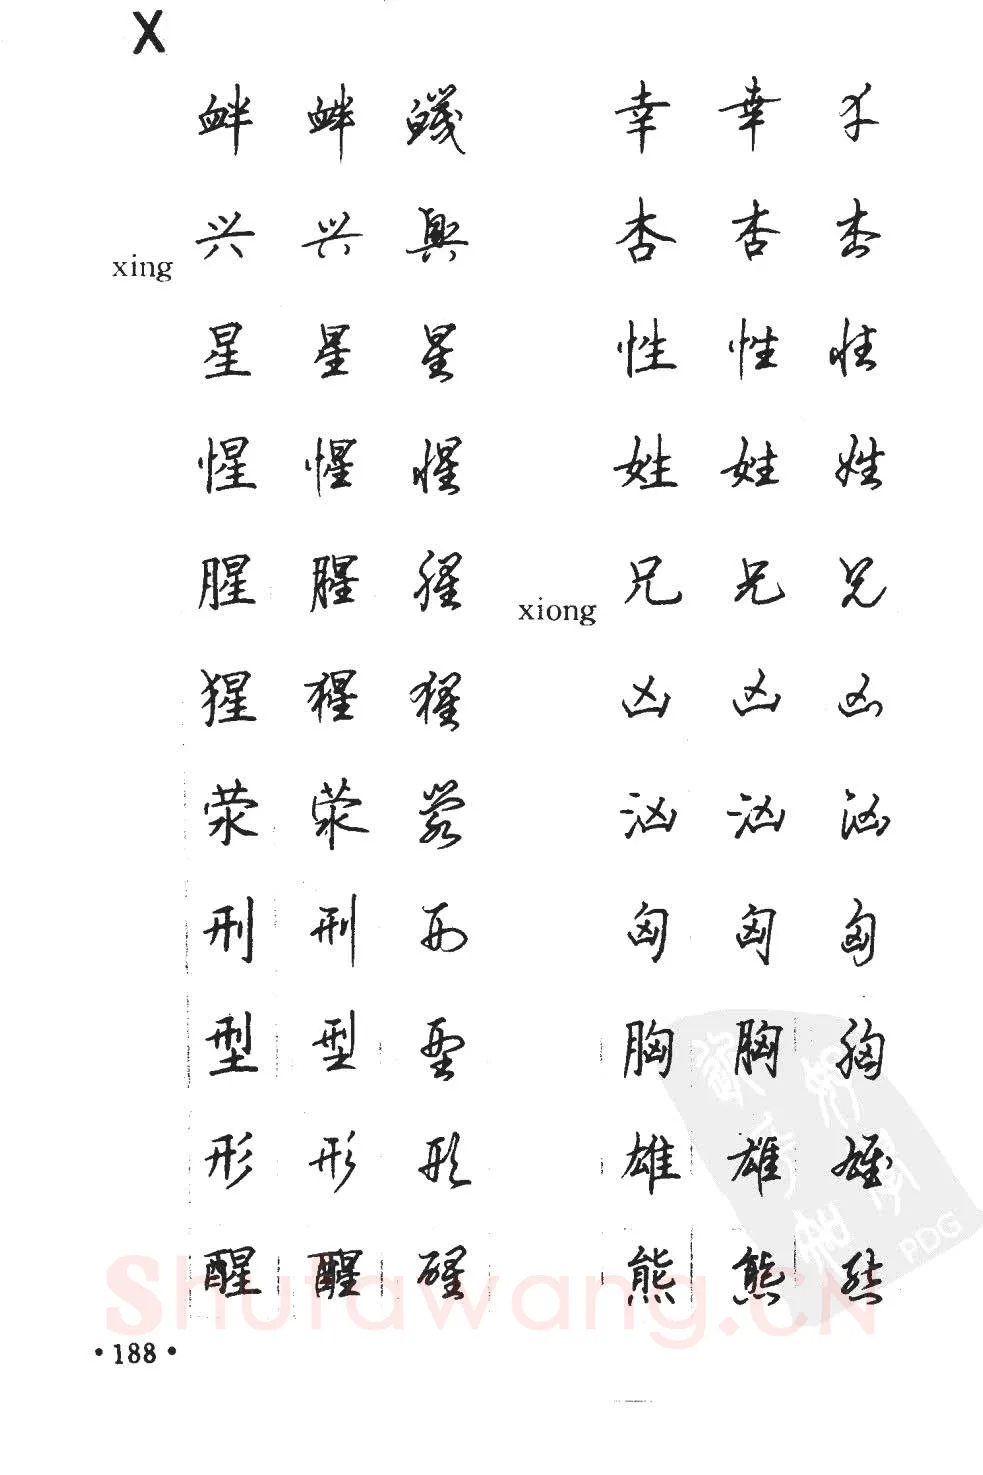 X
衅 衅
xing 兴 兴 興
星 星 星
惺 惺 惺
腥 腥 腥
猩 猩 猩
荥 荥 滎
刑 刑 刑
型 型 型
形 形 形
醒 醒 醒
幸 幸 幸
杏 杏 杏
性 性 性
姓 姓 姓
xiong 兄 兄 兄
凶 凶 凶
汹 汹 汹
匈 匈 匈
胸 胸 胸
雄 雄 雄
熊 熊 熊
PDG
Shufawang.CN
·188·